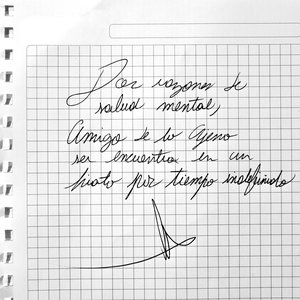 Por razones de
salud mental,
Amigo de lo Ajeno
se encuentra en un
hiato por tiempo indefinido